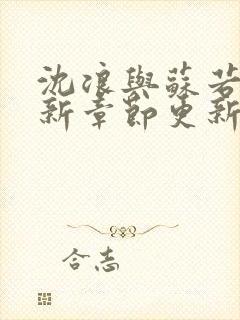 沈浪與蘇若
新章節更新
合志